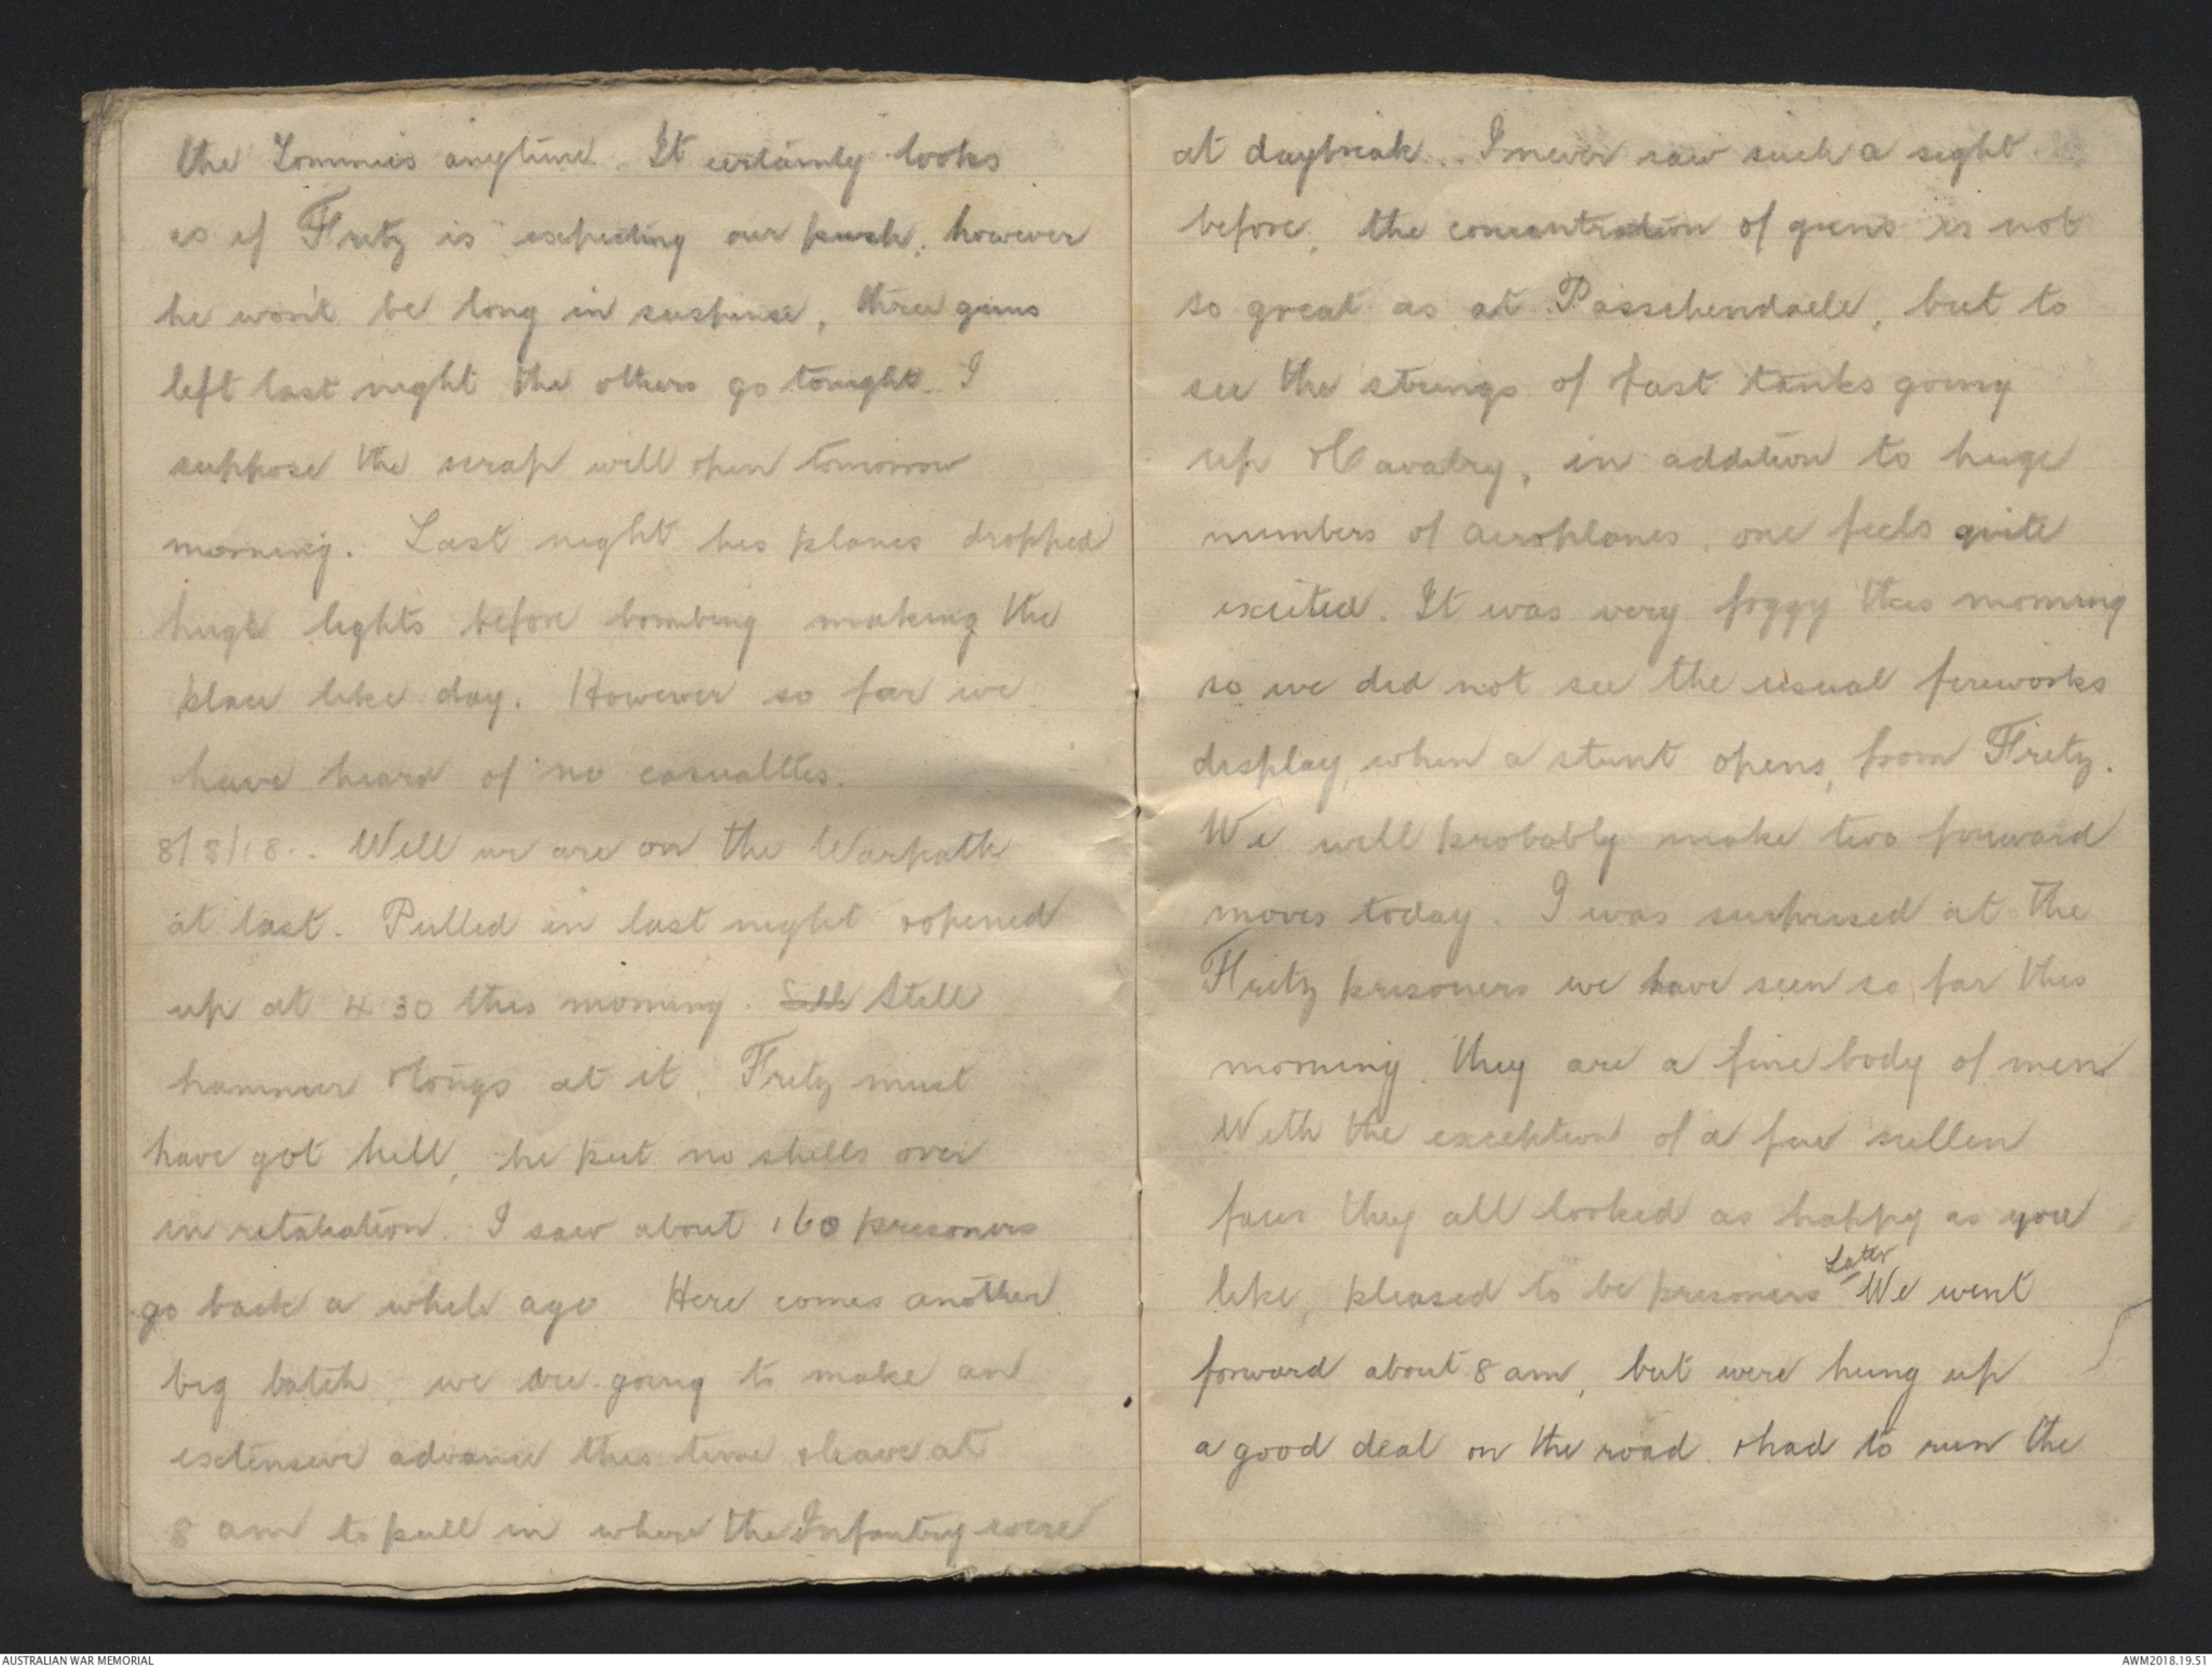 the Tommies anytime. It certainly looks
as if Fritz is expecting our push, however
he won't be long in suspense, three guns
left last night the others go tonight. I
suppose the scrap will open tomorrow
morning. Last night his planes dropped
huge lights before bombing making the
place like day. However so far we
have heard of no casualties.
8/8/18. Well we are on the Warpath
at last. Pulled in last night & opened
up at 4 30 this morning. Still
hammer & tongs at it. Fritz must
have got hell, he put no shells over
in retaliation. I saw about 160 prisoners
go back a while ago Here comes another
big batch, we are going to make an
extensive advance this time & leave at
8 am to pull in where the Infantry were
at daybreak. I never saw such a sight
before, the concentration of guns is not
so great as at Passchendaele, but to
see the strings of fast tanks going
up & Cavalry, in addition to huge
numbers of aeroplanes, one feels quite
excited. It was very foggy this morning
so we did not see the usual fireworks
display, when a stunt opens, from Fritz.
We will probably make two forward
moves today. I was surprised at the
Fritz prisoners we have seen so far this
morning. they are a fine body of men
With the exception of a few sullen
faces they all looked as happy as you
like, pleased to be prisoners. Later We went
forward about 8 am, but were hung up
a good deal on the road. & had to run the
AUSTRALIAN WAR MEMORIAL
AWM2018.19.51